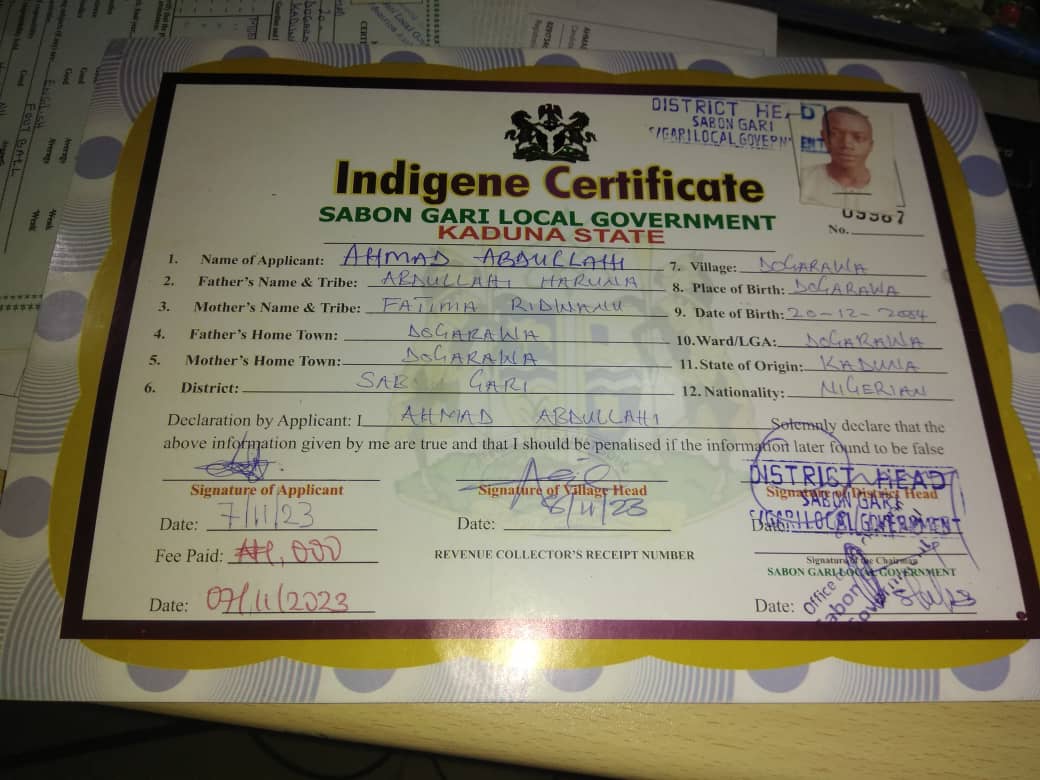 DISTRICT HEAD
SABON GARI
S/GARI LOCAL GOVERNMENT
Indigene Certificate
SABON GARI LOCAL GOVERNMENT
KADUNA STATE
No. 09987
1. Name of Applicant: AHMAD ABDULLAHI
2. Father's Name & Tribe: ABDULLAHI HARUNA
3. Mother's Name & Tribe: FATIMA RIDWANU
4. Father's Home Town: DOGARAWA
5. Mother's Home Town: DOGARAWA
6. District: SAB GARI
7. Village: DOGARAWA
8. Place of Birth: DOGARAWA
9. Date of Birth: 20-12-2004
10. Ward/LGA: DOGARAWA
11. State of Origin: KADUNA
12. Nationality: NIGERIAN
Declaration by Applicant: I AHMAD ABDULLAHI Solemnly declare that the
above information given by me are true and that I should be penalised if the information later found to be false
Signature of Applicant
Date: 7/11/23
Fee Paid: ₦1,000
Date: 07/11/2023
Signature of Village Head
Date: 8/11/23
REVENUE COLLECTOR'S RECEIPT NUMBER
DISTRICT HEAD
Signature of District Head
SABON GARI
S/GARI LOCAL GOVERNMENT
Date:
Signature of the Chairman
SABON GARI LOCAL GOVERNMENT
Office
Sabon
Date: 8/11/23